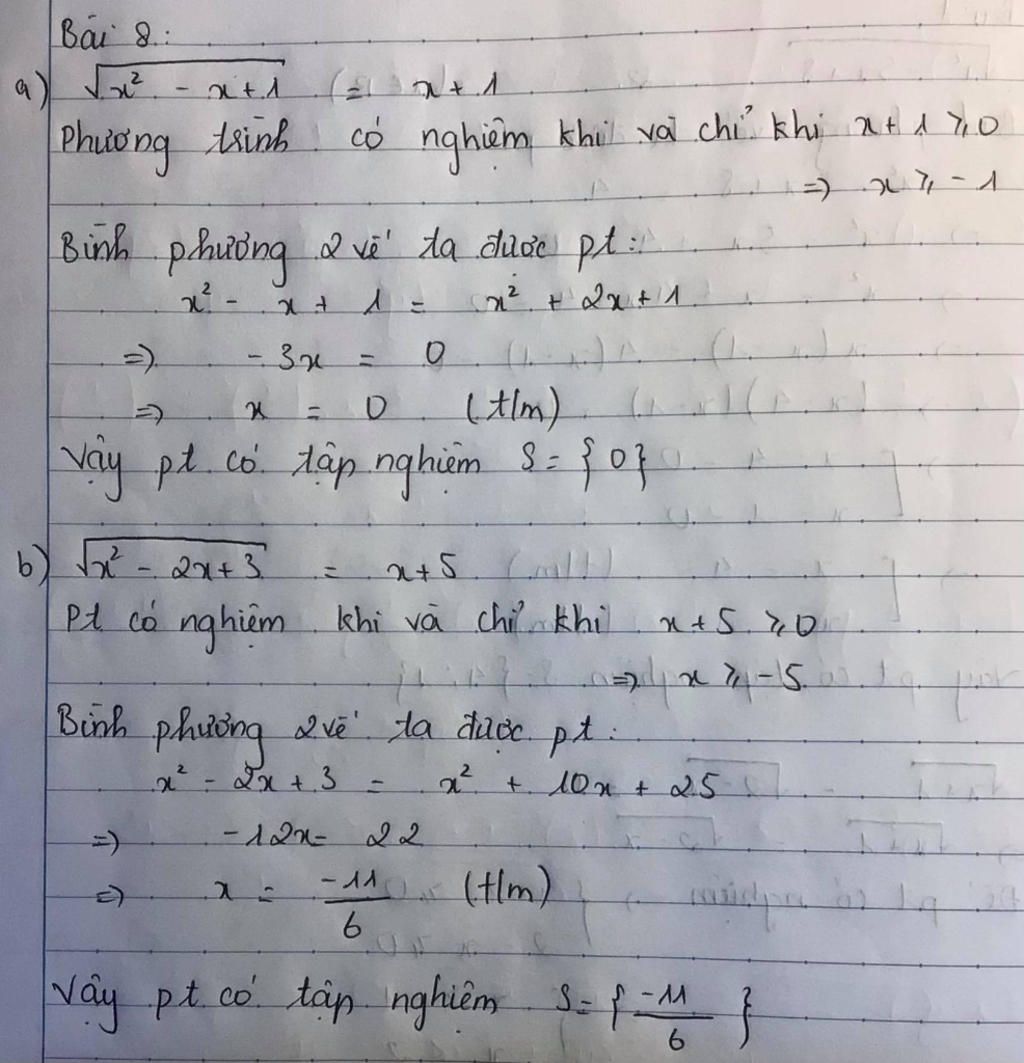 Bài 8:
a) √(x² - x + 1) = x + 1
Phương trình có nghiệm khi và chỉ khi x + 1 ⩾ 0
=> x ⩾ -1
Bình phương 2 vế ta được pt:
x² - x + 1 = x² + 2x + 1
=> -3x = 0
=> x = 0 (t/m)
Vậy pt có tập nghiệm S = {0}
b) √(x² - 2x + 3) = x + 5
Pt có nghiệm khi và chỉ khi x + 5 ⩾ 0
=> x ⩾ -5
Bình phương 2 vế ta được pt:
x² - 2x + 3 = x² + 10x + 25
=> -12x = 22
=> x = -11/6 (t/m)
Vậy pt có tập nghiệm S = {-11/6}